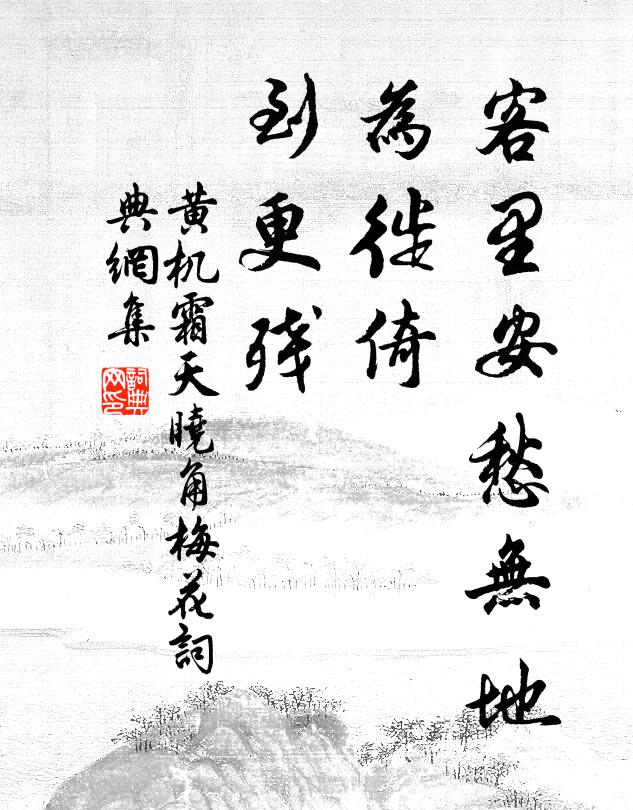 客里安愁無地
為徙倚
到更残
黄机霜天曉角梅花詞
典網集
詞典网印